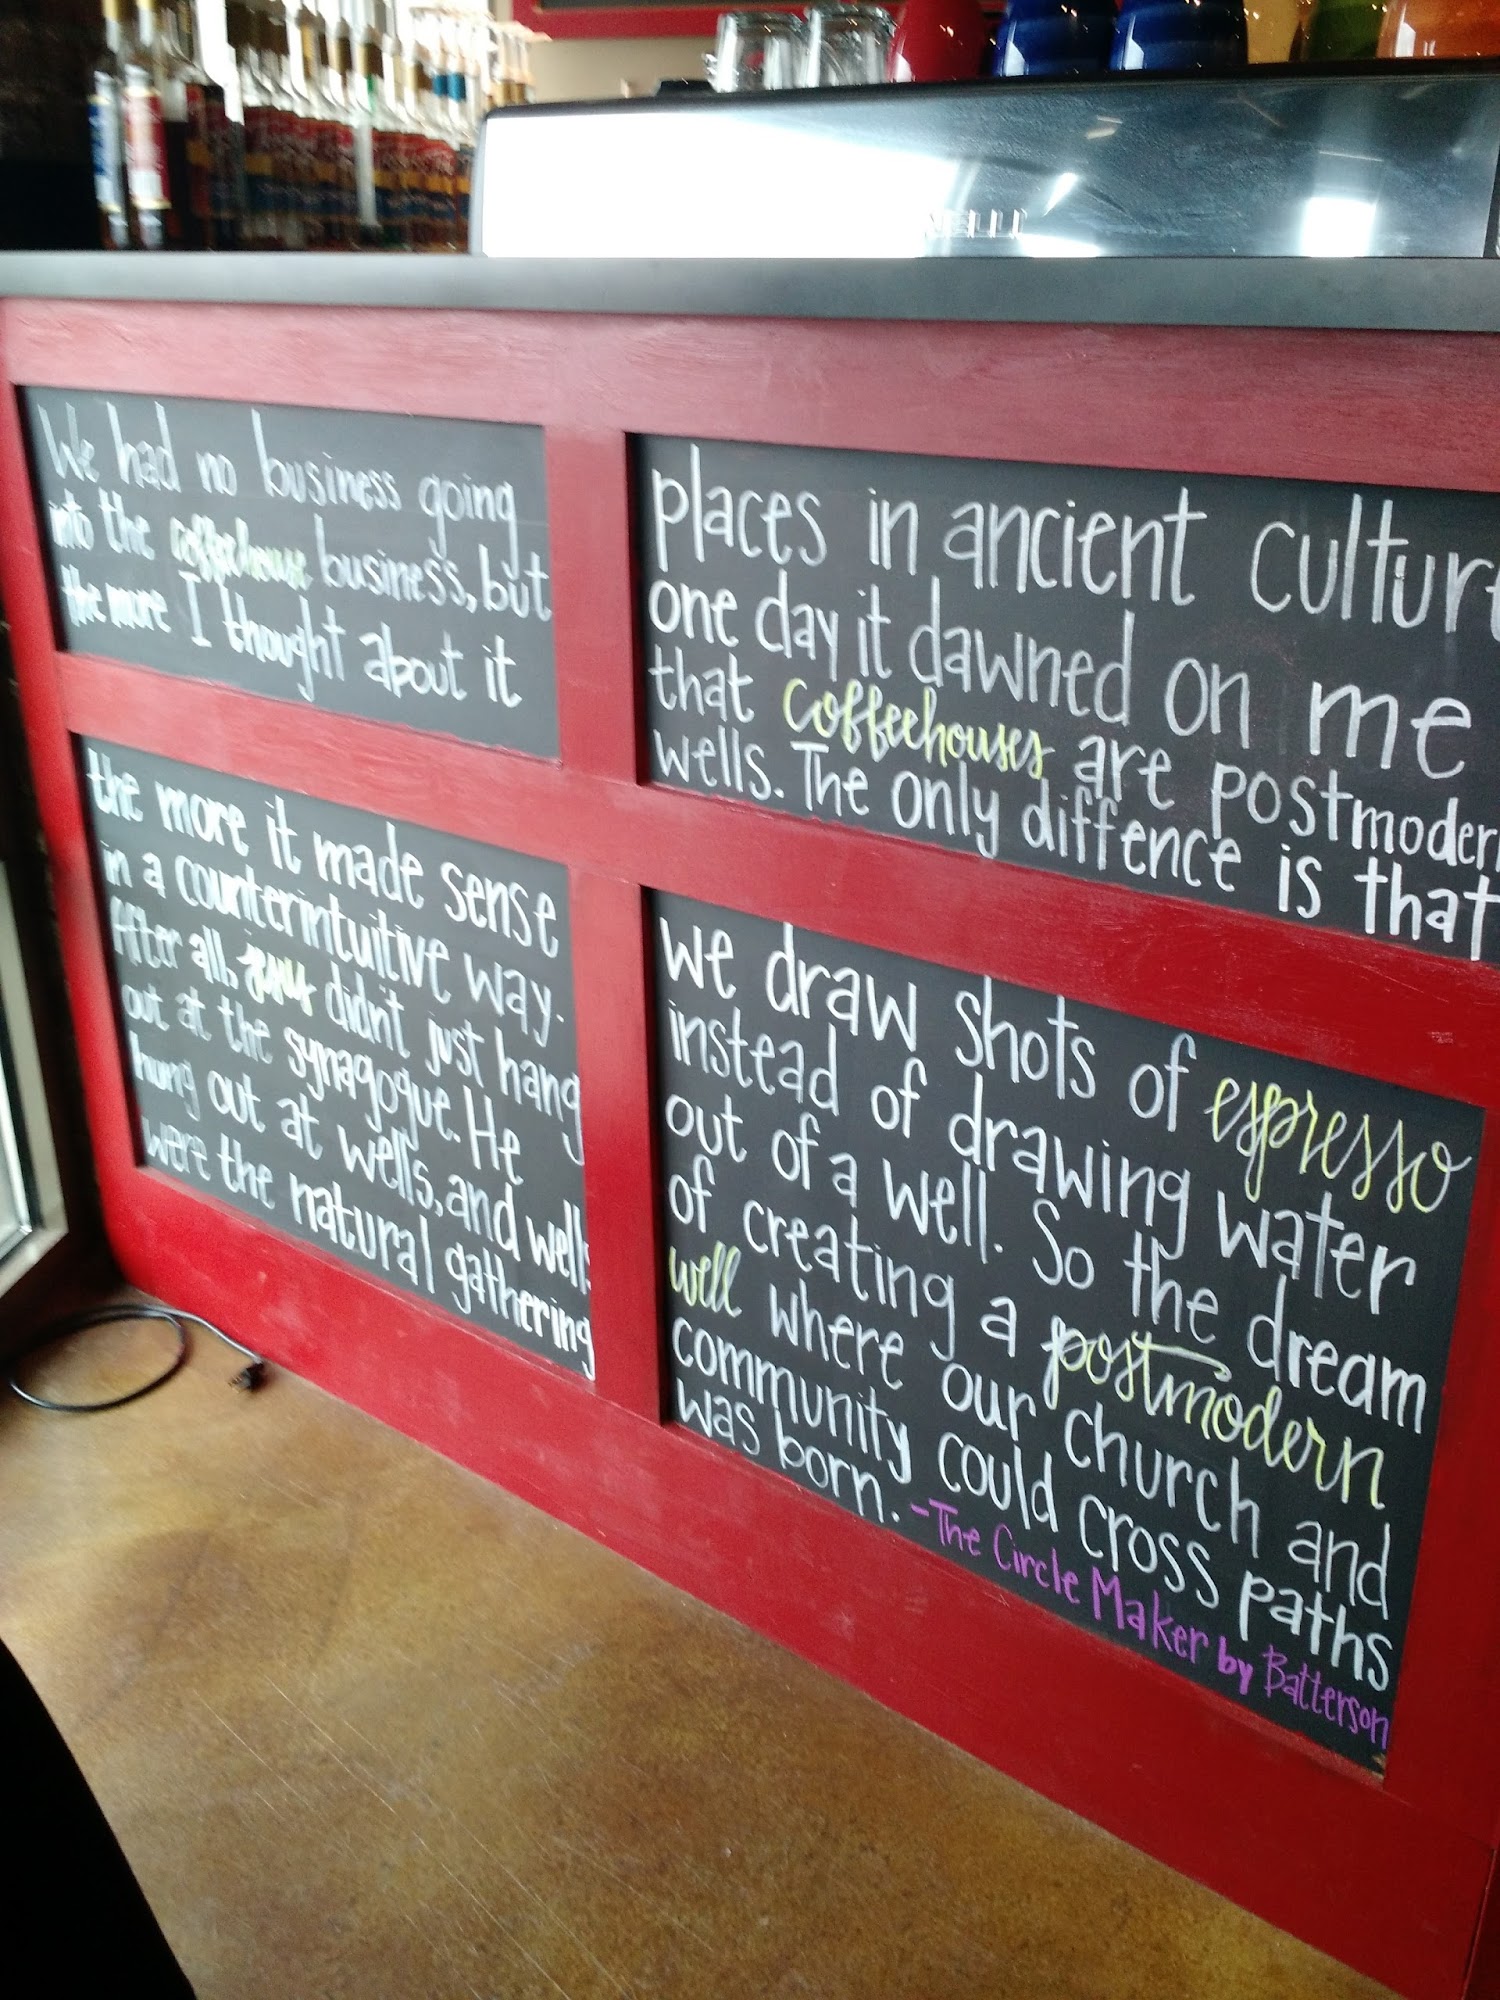 We had no business going
into the coffeehouse business, but
the more I thought about it
the more it made sense
in a counterintuitive way.
After all, jesus didn't just hang
out at the synagogue. He
hung out at wells, and wells
were the natural gathering
places in ancient culture
one day it dawned on me
that coffeehouses are postmodern
wells. The only diffence is that
we draw shots of espresso
instead of drawing water
out of a well. So the dream
of creating a postmodern
well where our church and
community could cross paths
was born. -The Circle Maker by Batterson